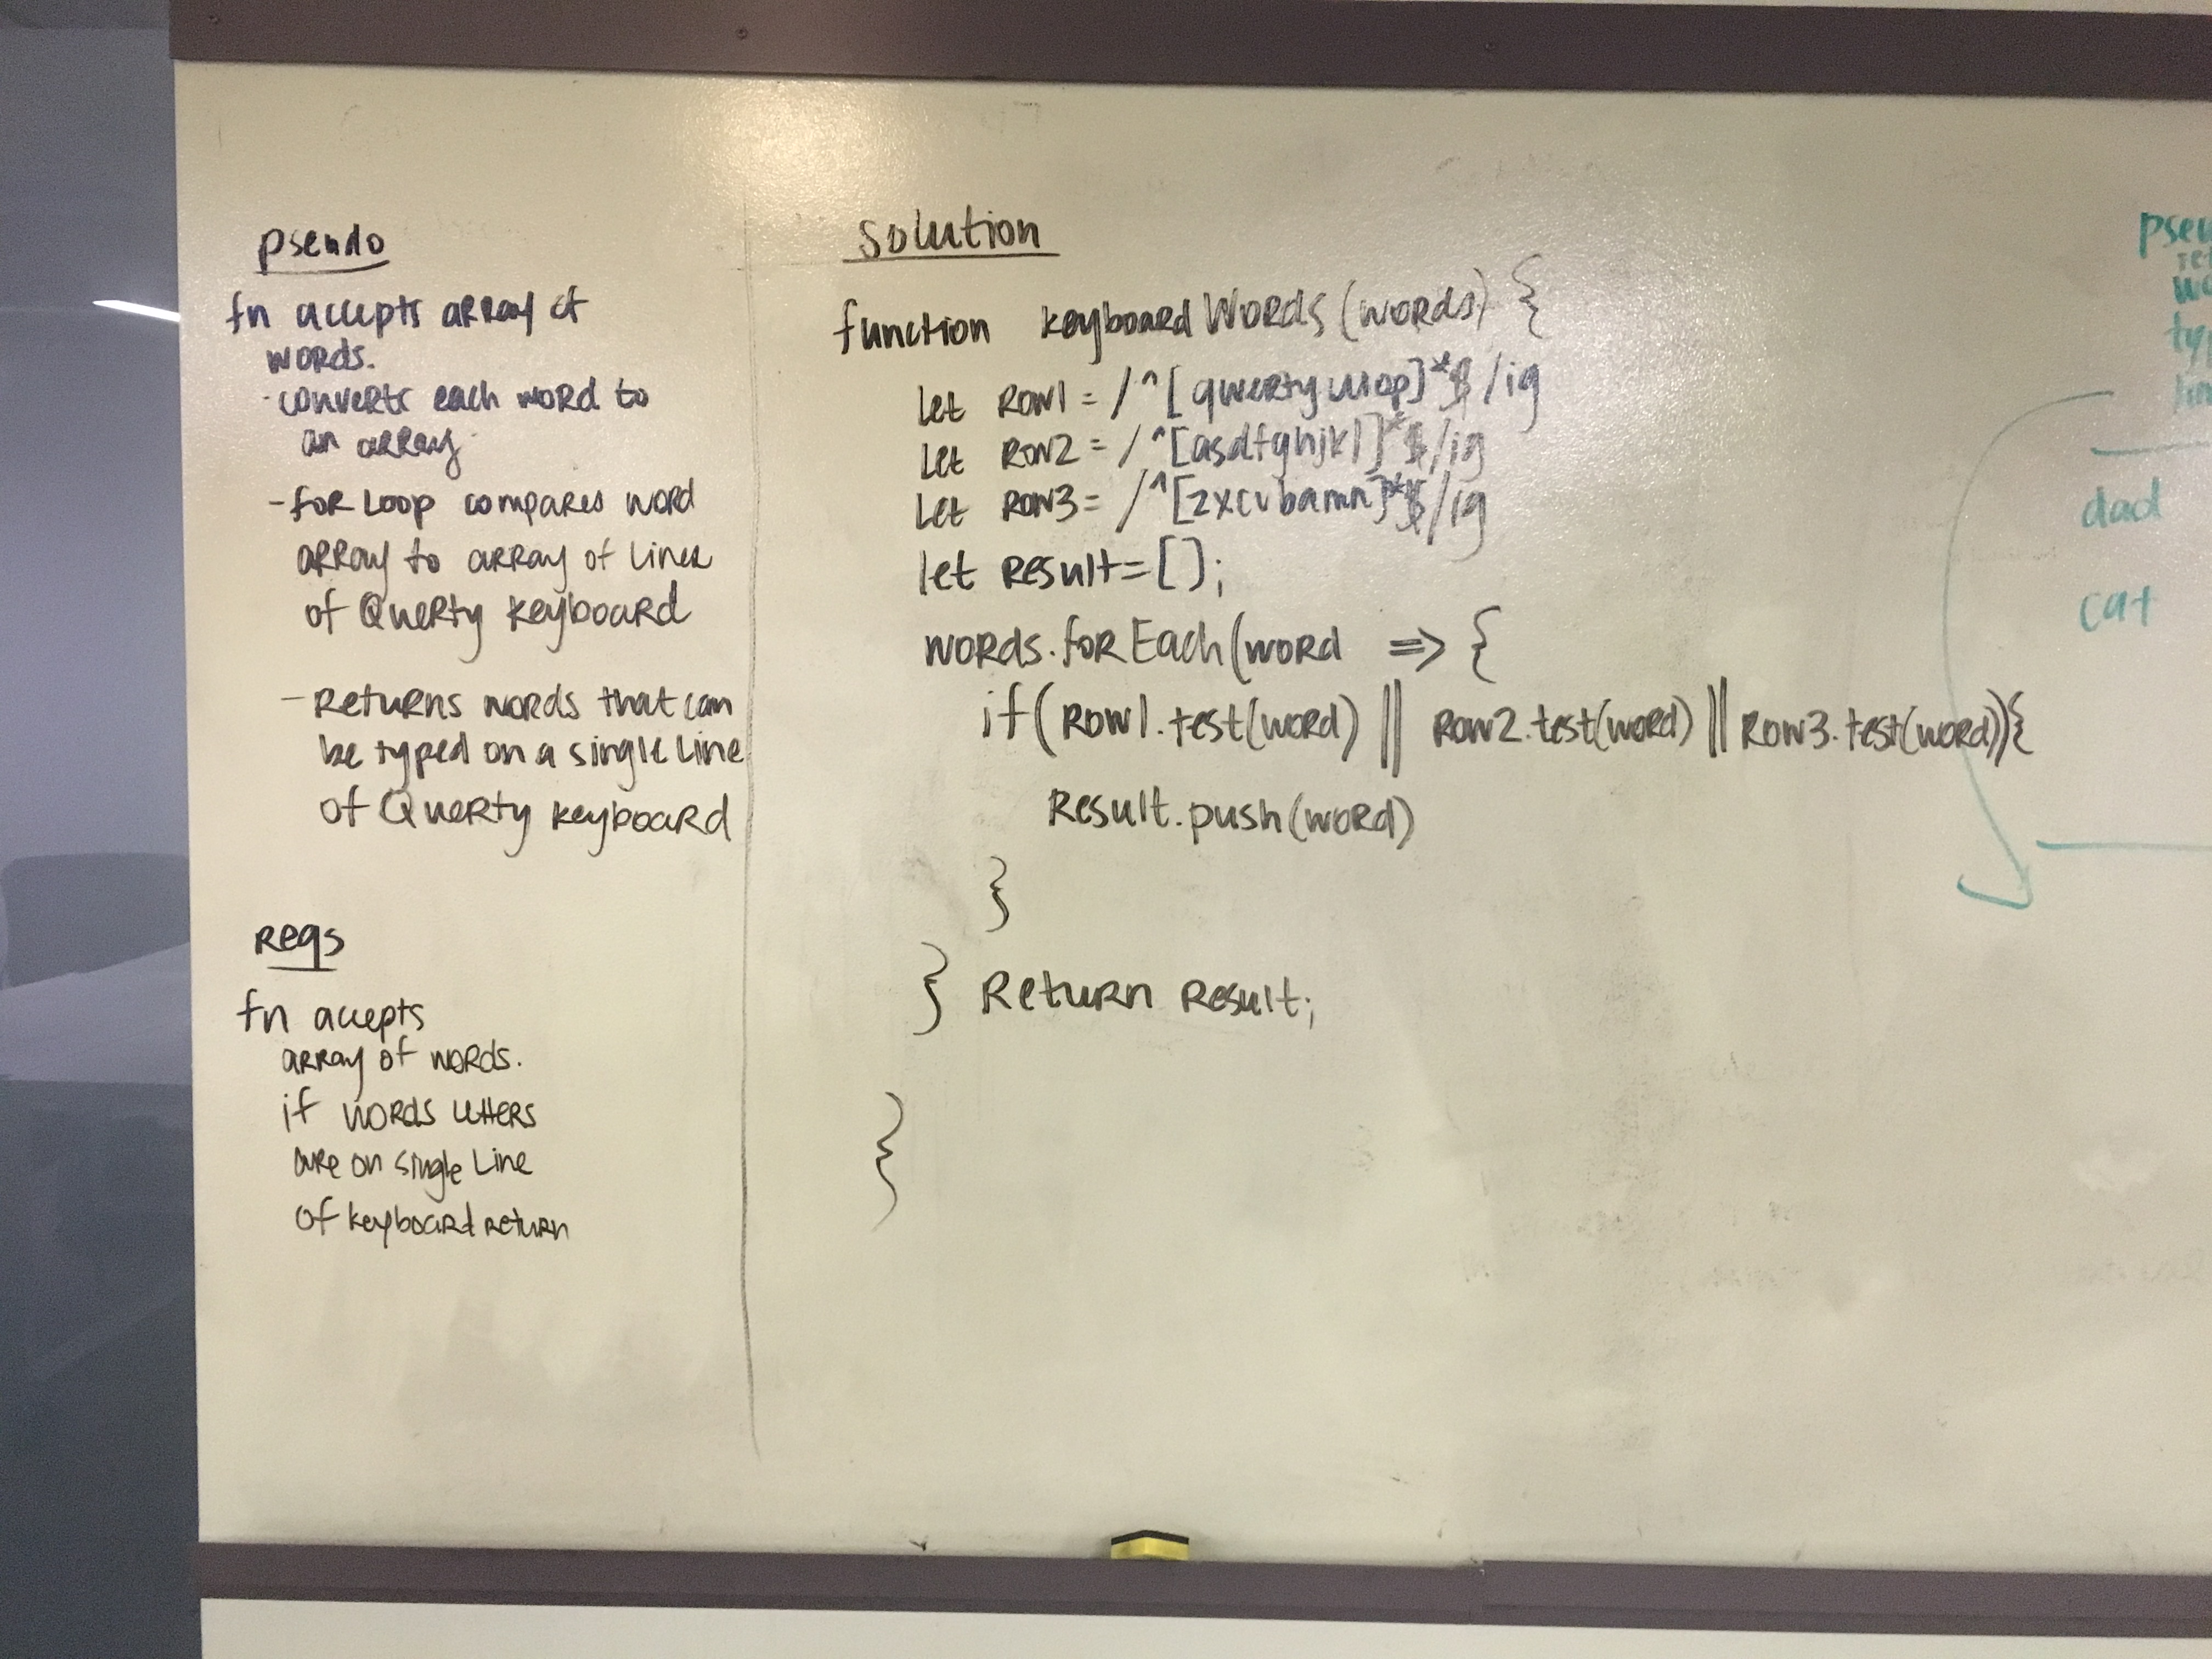 pseudo
fn accepts array of
words.
- converts each word to
an array
- for Loop compares word
array to array of lines
of Qwerty keyboard
- Returns words that can
be typed on a single line
of Qwerty keyboard
reqs
fn accepts
array of words.
if words letters
are on single Line
of keyboard return
Solution
function keyboardWords (words) {
let row1 = /^[qwertyuiop]*$/ig
let row2 = /^[asdfghjkl]*$/ig
let row3 = /^[zxcvbamn]*$/ig
let result = [];
words.forEach(word => {
if(row1.test(word) || row2.test(word) || row3.test(word)){
Result.push(word)
}
} Return result;
}
dad
cat